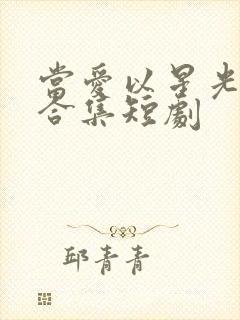 當愛以星光
合集短劇
邱青青